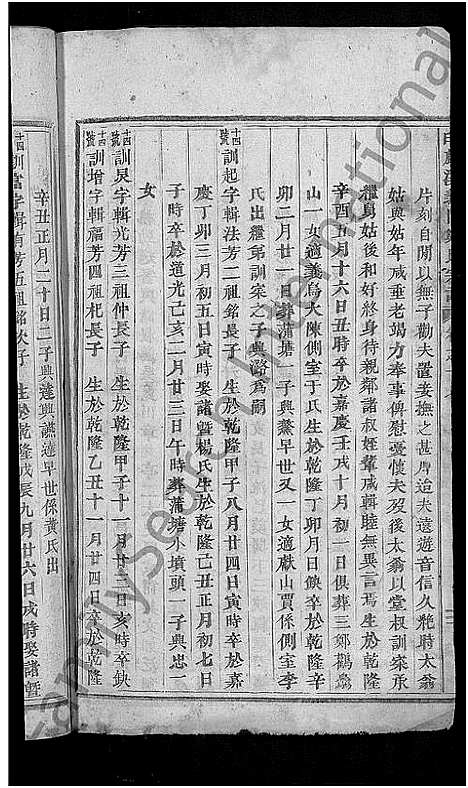 片刻自閒以無子勸夫置妾撫之甚厚迨夫遠遊音信久
姑與姑年咸垂老竭力奉事俾慰憂懷夫歿後太翁以堂叔訓寀承
繼舅姑後和好終身待親鄰諸叔姪輩咸輯睦無異言焉生於乾隆
辛酉五月十六日丑時卒於嘉慶壬戌十月初一日俱葬三鄉鸛
山一女適義烏大陳側室于氏生於乾隆丁卯月日缺卒於乾隆辛
卯二月廿一日葬蒲塘一子興 早世又一女適獻山賈係側室李
氏出繼弟訓寀之子興潞為嗣
十四號訓起字輯法芳二祖銘長子 生於乾隆甲子八月廿四日寅時卒於嘉
慶丁卯三月初五日寅時娶諸暨楊氏生於乾隆己丑正月初七日
子時卒於道光己亥二月廿三日午時葬蒲塘外墳頭一子興忠一
女
十四號訓炅字輯光芳三祖仲長子 生於乾隆甲子十一月廿二日亥時卒缺
十四號訓增字輯福芳四祖杞長子 生於乾隆乙丑十一月廿四日卒於乾隆
辛丑正月二十日二子興達興讌達早世係黃氏出
十四訓富字輯有芳五祖銘次子 生於乾隆戊辰九月廿六日戌時娶諸暨
FamilySearch International